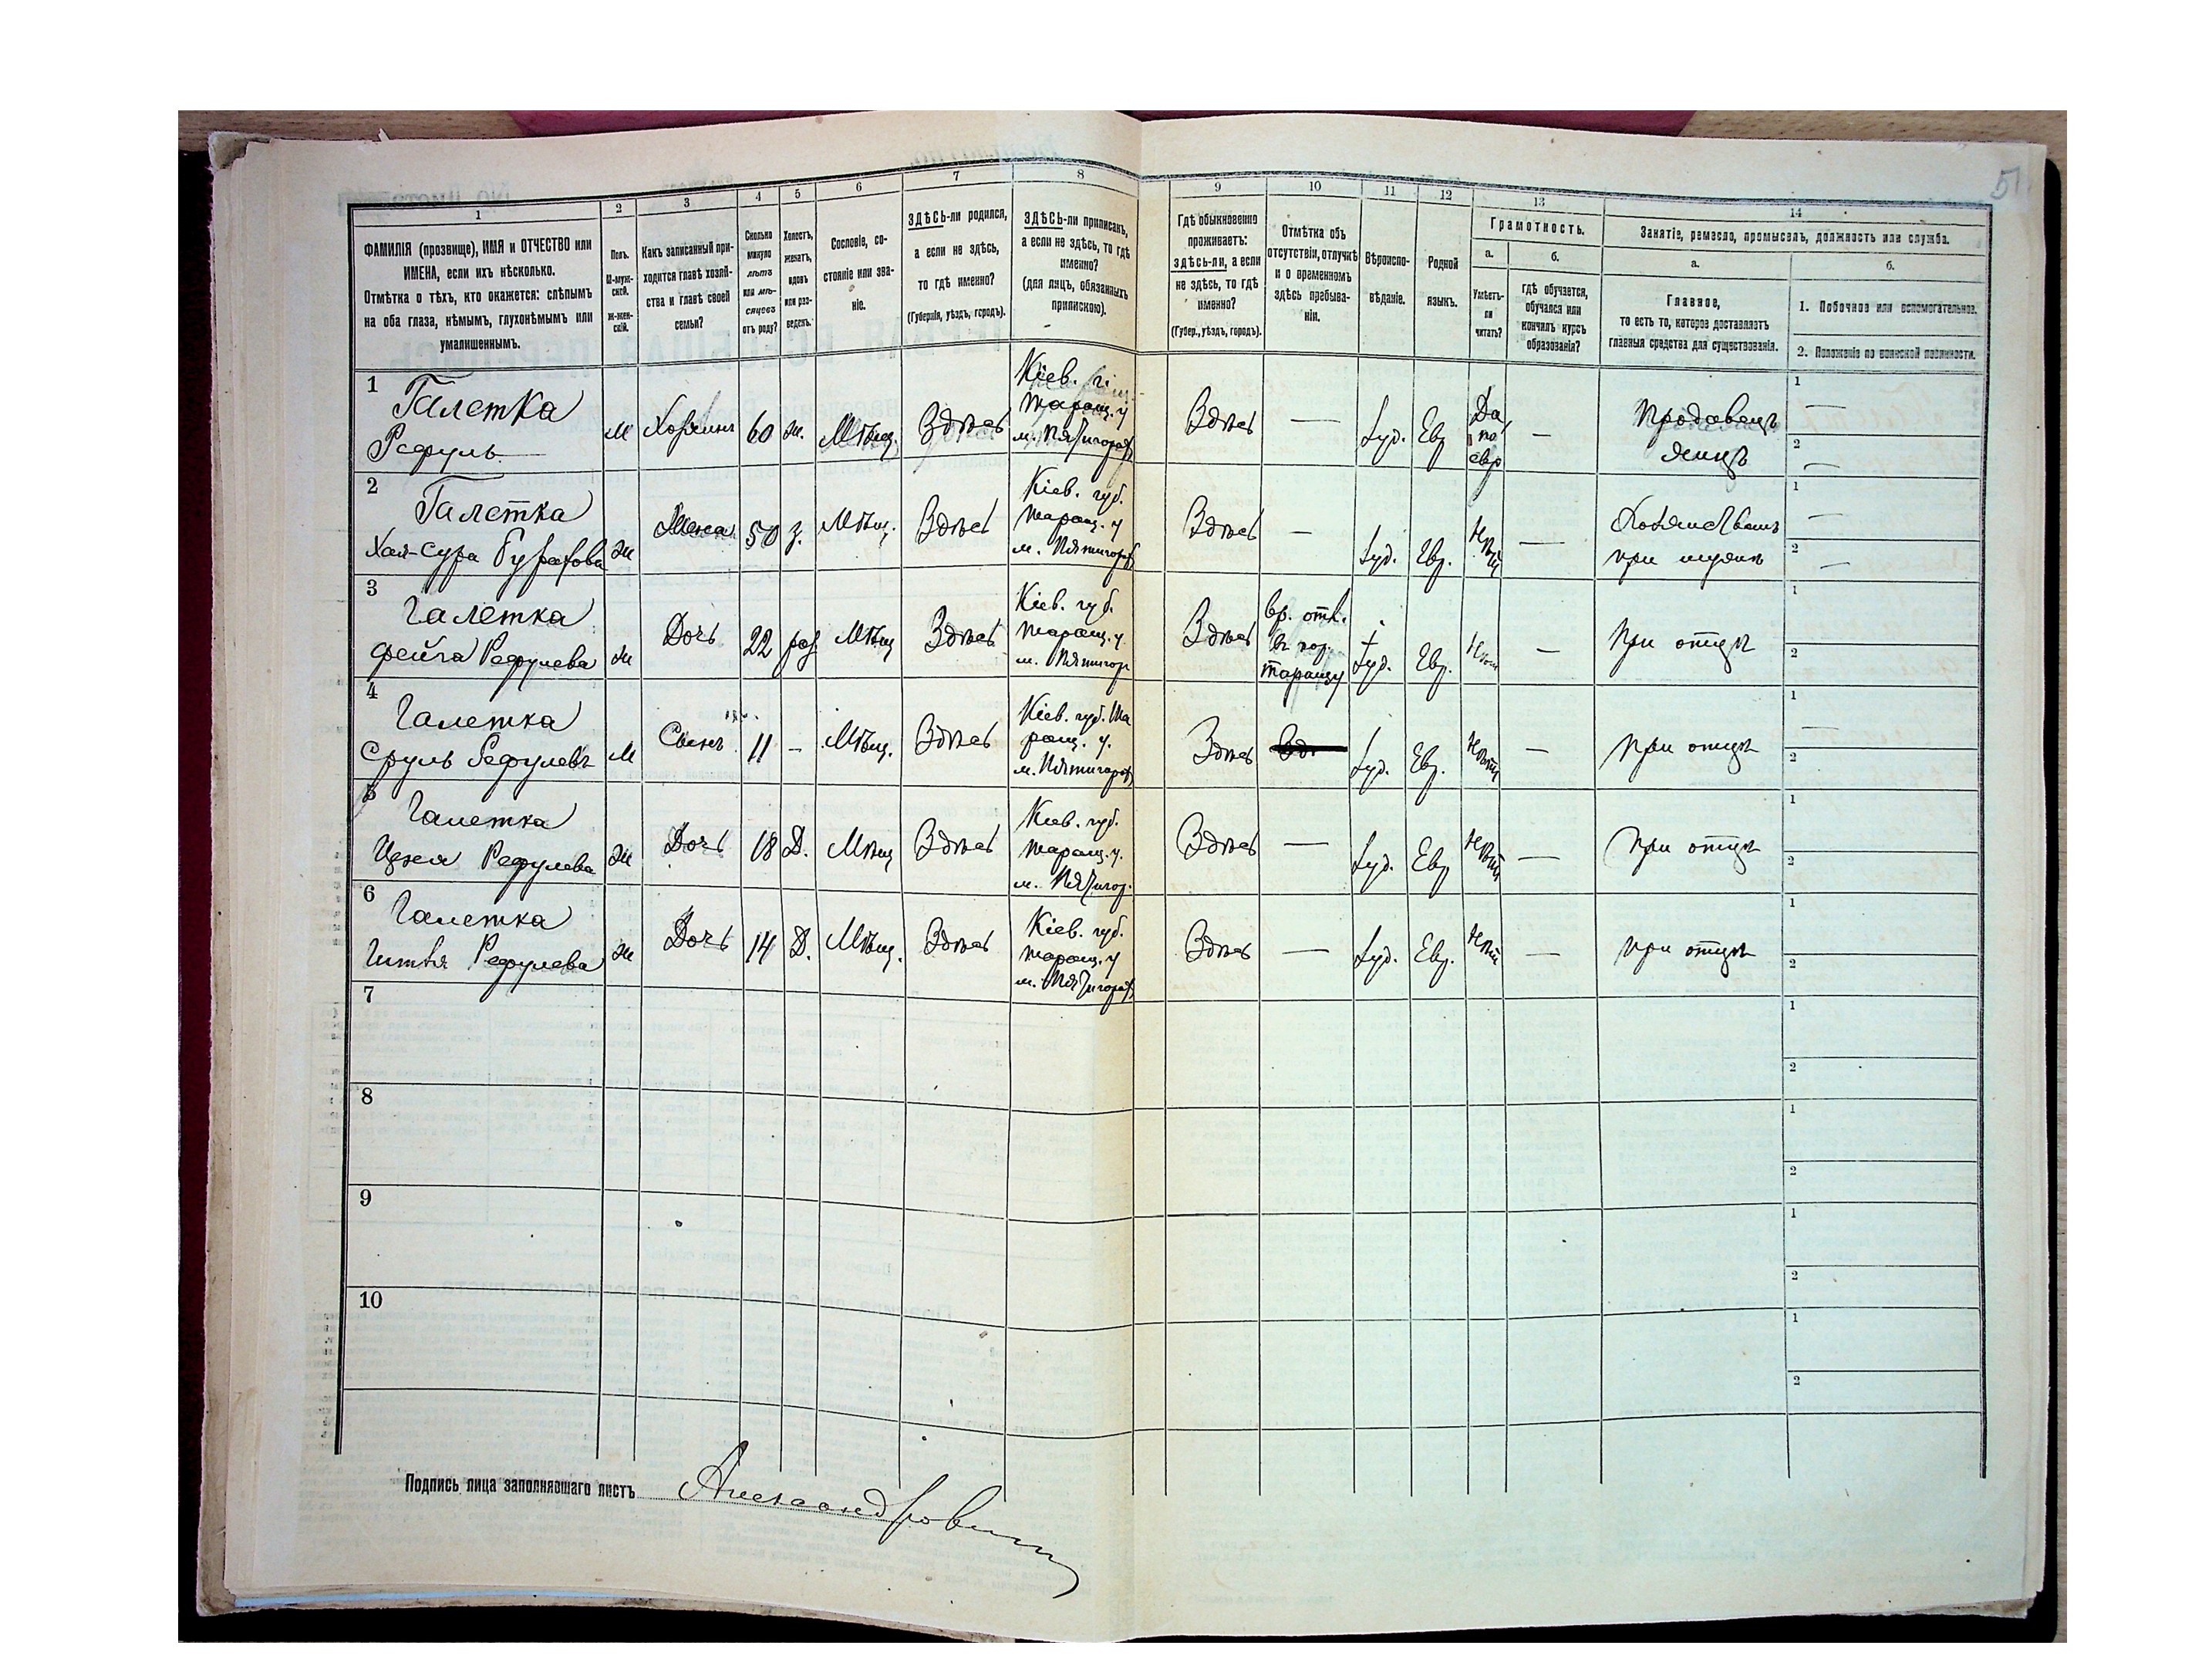 51
1 2 3 4 5 6 7 8 9 10 11 12 13 14
ФАМИЛІЯ (прозвище), ИМЯ и ОТЧЕСТВО или
ИМЕНА, если ихъ нѣсколько.
Отмѣтка о тѣхъ, кто окажется: слѣпымъ
на оба глаза, нѣмымъ, глухонѣмымъ или
умалишеннымъ.
Полъ.
М-муж-
ской.
ж-жен-
скій.
Какъ записанный при-
ходится главѣ хозяй-
ства и главѣ своей
семьи?
Сколько
минуло
лѣтъ
или мѣ-
сяцевъ
отъ роду?
Холостъ,
женатъ,
вдовъ
или раз-
веденъ.
Сословіе, со-
стояніе или зва-
ніе.
ЗДѢСЬ-ли родился,
а если не здѣсь,
то гдѣ именно?
(Губернія, уѣздъ, городъ).
ЗДѢСЬ-ли приписанъ,
а если не здѣсь, то гдѣ
именно?
(для лицъ, обязанныхъ
припискою).
Гдѣ обыкновенно
проживаетъ:
здѣсь-ли, а если
не здѣсь, то гдѣ
именно?
(Губер., уѣздъ, городъ).
Отмѣтка объ
отсутствіи, отлучкѣ
и о временномъ
здѣсь пребыва-
ніи.
Вѣроиспо-
вѣданіе.
Родной
языкъ.
Грамотность.
а.
Умѣетъ-
ли
читать?
б.
гдѣ обучается,
обучался или
кончилъ курсъ
образованія?
Занятіе, ремесло, промыселъ, должность или служба.
а.
Главное,
то есть то, которое доставляетъ
главныя средства для существованія.
б.
1. Побочное или вспомогательное.
2. Положеніе по воинской повинности.
1
Галетка
Рефуль
М
Хозяинъ
60
ж.
Мѣщ.
Здѣсь
Кіев. г.
таращ. у
м. Пятигоры
Здѣсь
—
Іуд.
Евр
Да
по
евр
—
Продавецъ
яицъ
1 —
2 —
2
Галетка
Хая-Сура
Ж
Жена
50
з.
Мѣщ.
Здѣсь
Кіев. губ.
таращ. у
м. Пятигоры
Здѣсь
—
Іуд.
Евр.
Нѣтъ
—
при мужѣ
1 —
2 —
3
Галетка
Фейга Рефулева
Ж
Дочь
22
раз
Мѣщ
Здѣсь
Кіев. губ.
таращ. у.
м. Пятигор
Здѣсь
вр. отл.
въ гор.
таращу
Іуд.
Евр.
Нѣт
—
При отцѣ
1
2
4
Галетка
Сруль Рефулевъ
М
Сынъ
11
–
Мѣщ.
Здѣсь
Кіев. губ. Та
ращ. у.
м. Пятигоры
Здѣсь
Іуд.
Евр.
Нѣтъ
—
При отцѣ
1 —
2
5
Галетка
Рефулева
Ж
Дочь
18
Д.
Мѣщ
Здѣсь
Кіев. губ.
таращ. у.
м. Пятигор.
Здѣсь
—
Іуд.
Евр
Нѣтъ
—
При отцѣ
1
2
6
Галетка
Гитля Рефулева
Ж
Дочь
14
Д.
Мѣщ.
Здѣсь
Кіев. губ.
таращ. у
м. Пятигоры
Здѣсь
—
Іуд.
Евр.
Нѣт
—
При отцѣ
1
2
7
1
2
8
1
2
9
1
2
10
1
2
Подпись лица заполнявшаго листъ Александрович